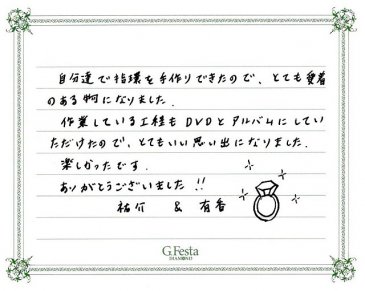 自分達で指環を手作りできたので、とても愛着
のある物になりました.
作業している工程もDVDとアルバムにしてい
ただけたので、とてもいい思い出になりました.
楽しかったです.
ありがとうございました!!
祐介 & 有香
G.Festa
DIAMOND